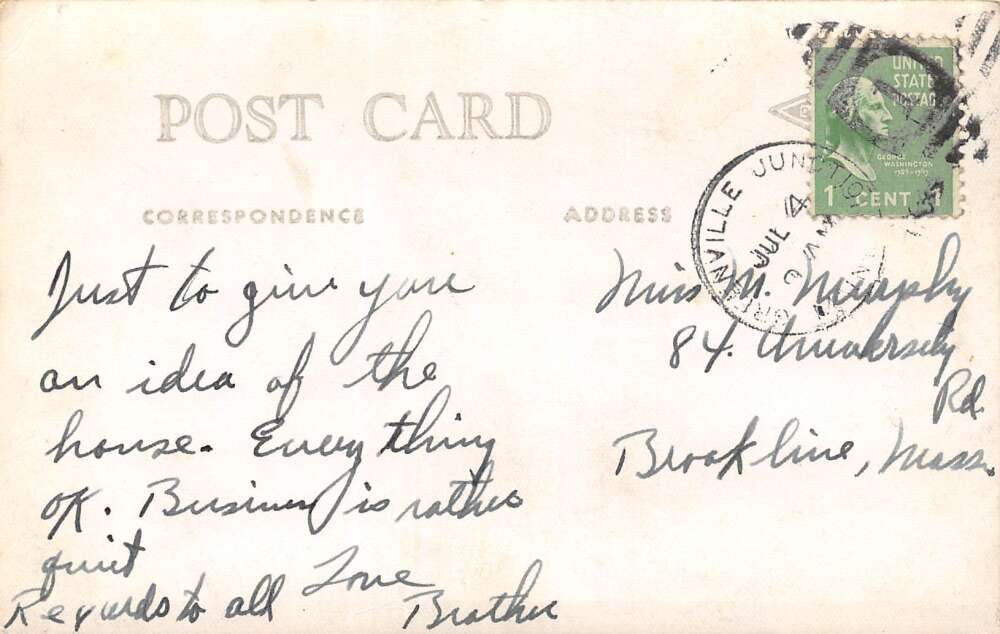 POST CARD
CORRESPONDENCE
ADDRESS
UNITED
STATES
POSTAGE
GEORGE
WASHINGTON
1789-1797
1 CENT 1
JUNCTION
JUL 14
Just to give you
an idea of the
house. Everything
OK. Business is rather
quiet
Love
Regards to all Brother
Miss M. Murphy
84. University
Rd.
Brookline, Mass.